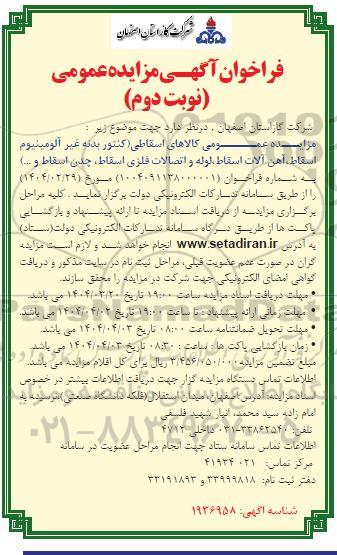 شرکت گاز استان اصفهان
فراخوان آگهی مزایده عمومی
(نوبت دوم)
شرکت گازاستان اصفهان ، درنظر دارد جهت موضوع زیر :
مزایـــده عمـــومی کالاهای اسقاطی(کنتور بدنه غیر آلومینیوم
اسقاط،آهن آلات اسقاط،لوله و اتصالات فلزی اسقاط، چدن اسقاط و ...)
بـه شماره فراخـوان (۱۰۰۴۰۹۱۱۳۸۰۰۰۰۰۱) مـورخ (۱۴۰۴/۰۲/۲۹)
را از طریق سـامانه تدارکات الکترونیکی دولت برگزار نمایـد . کلیه مراحل
برگزاری مزایده از دریافت اسناد مزایده تا ارائه پیشنهاد و بازگشایی
پاکت ها از طریق درگاه سامانه تدارکات الکترونیکی دولت(ستاد)
به آدرس www.setadiran.ir انجام خواهد شـد و لازم اسـت مزایده
گران در صورت عدم عضویت قبلی، مراحل ثبت نام در سایت مذکور و دریافت
گواهی امضای الکترونیکی جهت شرکت در مزایده را محقق سازند.
• مهلت دریافت اسناد مزایده ساعت ۱۹:۰۰ تاریخ ۱۴۰۴/۰۳/۲۰ می باشد.
• مهلت زمانی ارائه پیشنهاد : تا ساعت ۱۹:۰۰ تاریخ ۱۴۰۴/۰۴/۰۲ می باشد.
• مهلت تحویل ضمانتنامه ساعت ۰۸:۰۰ تاریخ ۱۴۰۴/۰۴/۰۳ می باشد.
• زمان بازگشایی پاکت ها : ساعت ۰۸:۳۰ تاریخ ۱۴۰۴/۰۴/۰۳ می باشد.
مبلغ تضمین مزایده:۳/۴۵۶/۰۵۰/۰۰۰ ریال برای کل اقلام مزایده می باشد.
اطلاعات تماس دستگاه مزایده گزار جهت دریافت اطلاعات بیشتر در خصوص
اسناد مزایده: آدرس:اصفهان،میدان استقلال(فلکه دانشگاه صنعتی)نرسیده به
امام زاده سید محمد، انبار شهید فلسفی
تلفن: ۳۳۸۶۲۵۴۰-۰۳۱ داخلی ۴۷۱۲
اطلاعات تماس سامانه ستاد جهت انجام مراحل عضویت در سامانه
مرکز تماس: ۰۲۱ ۴۱۹۳۴
دفتر ثبت نام: ۳۳۹۹۹۸۱۸ و ۳۳۱۹۱۸۹۳
شناسه آگهی: ۱۹۲۶۹۵۸